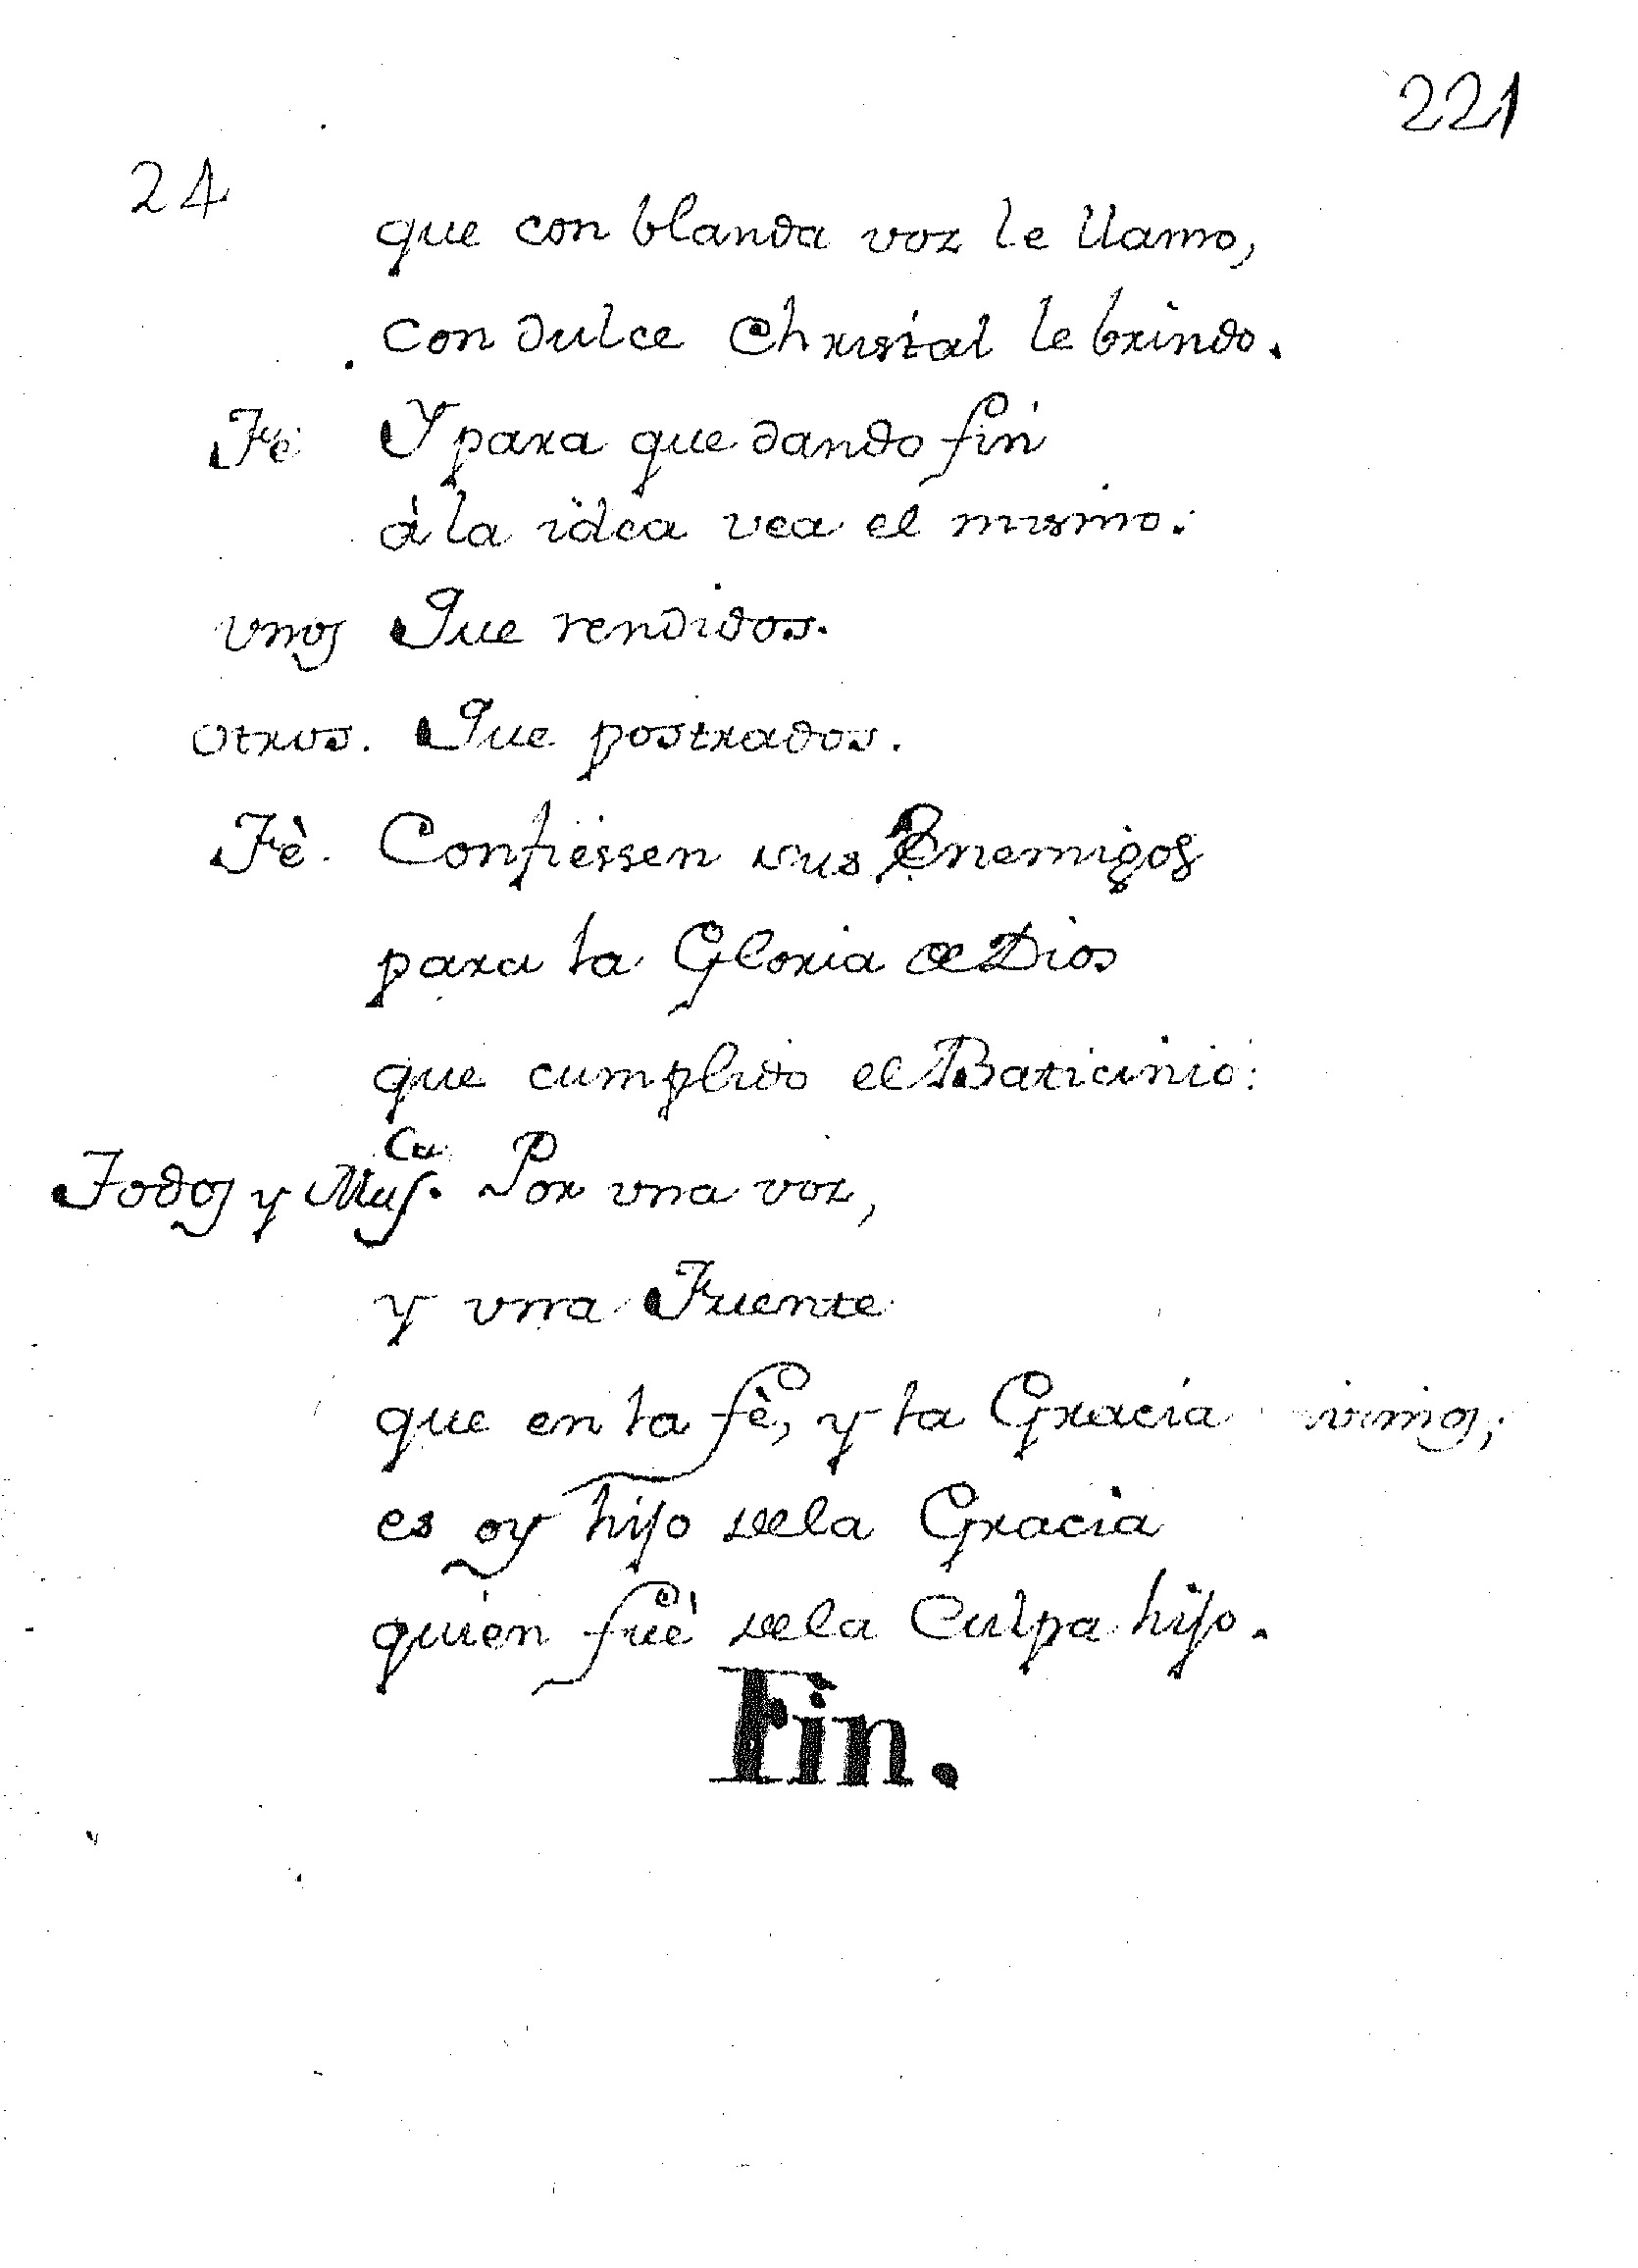 221
24
que con blanda voz le llamo,
con dulce Christal le brindo.
Fè Y para que dando fin
à la idea vea el mismo.
Vnos Que rendidos.
Otros. Que postrados.
Fè. Confiessen sus Enemigos
para la Gloria de Dios
que cumplido el Baticinio:
Todos y Mus.ca Por vna voz,
y vna Fuente
que en la fè, y la Gracia vimos,
es oy hijo dela Gracia
quien fuè dela Culpa hijo.
Fin.